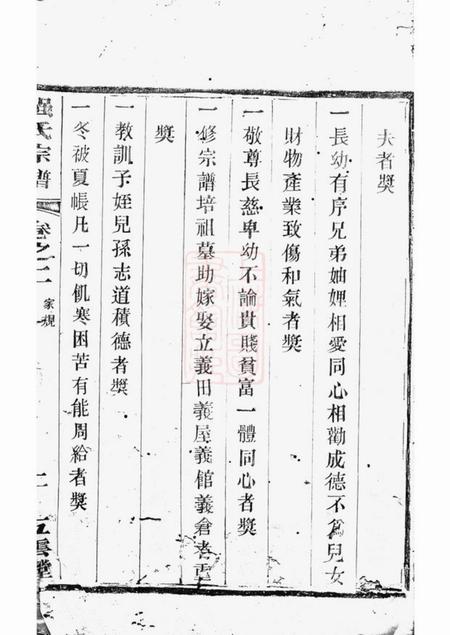 夫者獎
一長幼有序兄弟妯娌相愛同心相勸成德不爲兒女
財物產業致傷和氣者獎
一敬尊長慈卑幼不論貴賤貧富一體同心者獎
一修宗譜培祖墓助嫁娶立義田義屋義館義倉者重
獎
一教訓子姪兒孫志道積德者獎
一冬被夏帳凡一切飢寒困苦有能周給者獎
氏宗譜
卷之二
家規
五雲堂